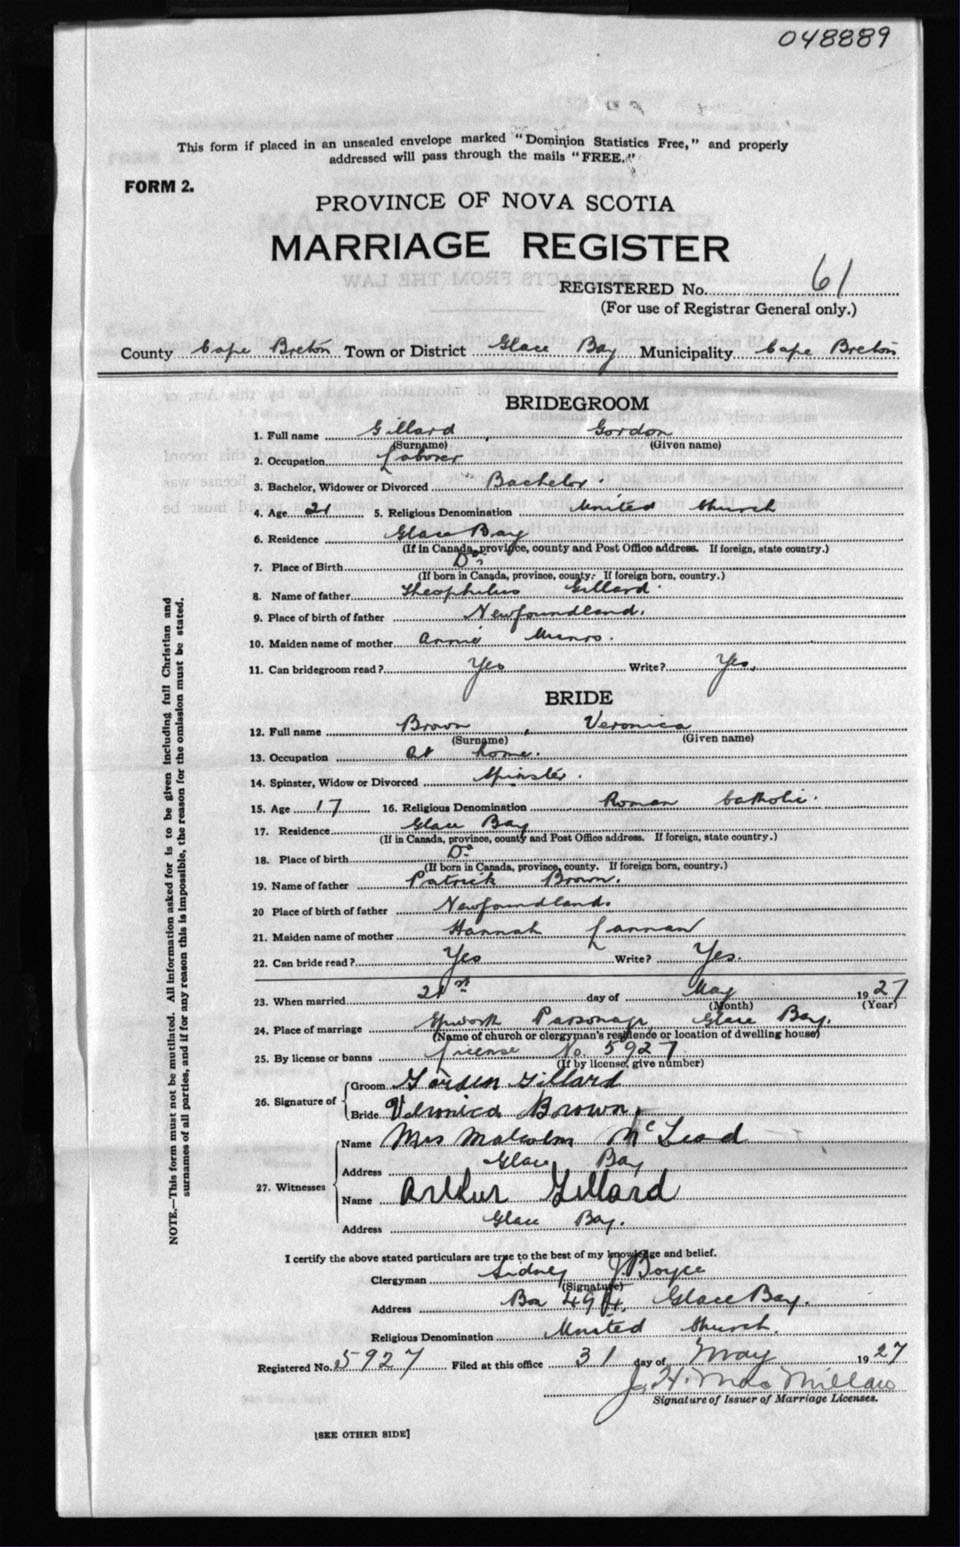 048889
This form if placed in an unsealed envelope marked "Dominion Statistics Free," and properly
addressed will pass through the mails "FREE."
FORM 2.
PROVINCE OF NOVA SCOTIA
MARRIAGE REGISTER
REGISTERED No. 61
(For use of Registrar General only.)
County Cape Breton Town or District Glace Bay Municipality Cape Breton
BRIDEGROOM
1. Full name Gillard, Gordon
(Surname) (Given name)
2. Occupation Laborer
3. Bachelor, Widower or Divorced Bachelor.
4. Age 21 5. Religious Denomination United Church
6. Residence Glace Bay
(If in Canada, province, county and Post Office address. If foreign, state country.)
7. Place of Birth Do
(If born in Canada, province, county. If foreign born, country.)
8. Name of father Theophilus Gillard.
9. Place of birth of father Newfoundland.
10. Maiden name of mother Annie Munro.
11. Can bridegroom read? Yes Write? Yes.
BRIDE
12. Full name Brown, Veronica
(Surname) (Given name)
13. Occupation at home.
14. Spinster, Widow or Divorced Spinster.
15. Age 17 16. Religious Denomination Roman Catholic.
17. Residence Glace Bay
(If in Canada, province, county and Post Office address. If foreign, state country.)
18. Place of birth Do
(If born in Canada, province, county. If foreign born, country.)
19. Name of father Patrick Brown.
20 Place of birth of father Newfoundland.
21. Maiden name of mother Hannah
22. Can bride read? Yes Write? Yes.
23. When married 21st day of May 1927
(Month) (Year)
24. Place of marriage Epworth Parsonage Glace Bay.
(Name of church or clergyman's residence or location of dwelling house)
25. By license or banns License No. 5927
(If by license, give number)
26. Signature of Groom Gorden Gillard
Bride Veronica Brown.
27. Witnesses Name Mrs Malcolm McLeod
Address Glace Bay
Name Arthur Gillard
Address Glace Bay.
I certify the above stated particulars are true to the best of my knowledge and belief.
Clergyman Sidney J Boyce
(Signature)
Address Box 494, Glace Bay.
Religious Denomination United Church.
Registered No. 5927 Filed at this office 31 day of May 1927
J. H. MacMillan
Signature of Issuer of Marriage Licenses.
[SEE OTHER SIDE]
NOTE.—This form must not be mutilated. All information asked for is to be given including full Christian and
surnames of all parties, and if for any reason this is impossible, the reason for the omission must be stated.